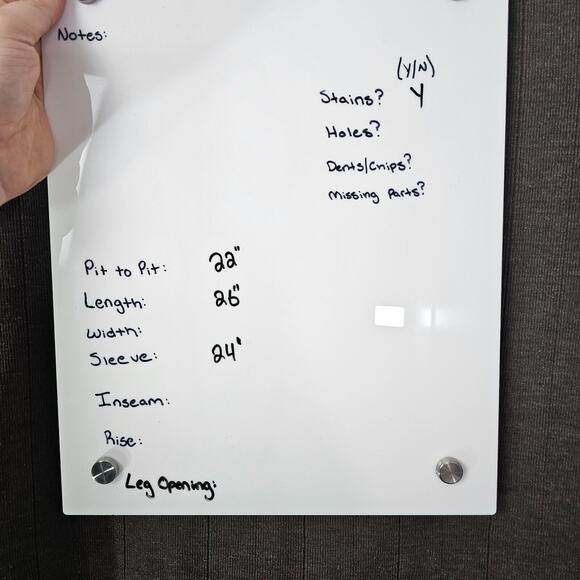 Notes:
(Y/N)
Stains? Y
Holes?
Dents/Chips?
Missing Parts?
Pit to Pit: 22"
Length: 26"
Width:
Sleeve: 24"
Inseam:
Rise:
Leg Opening: